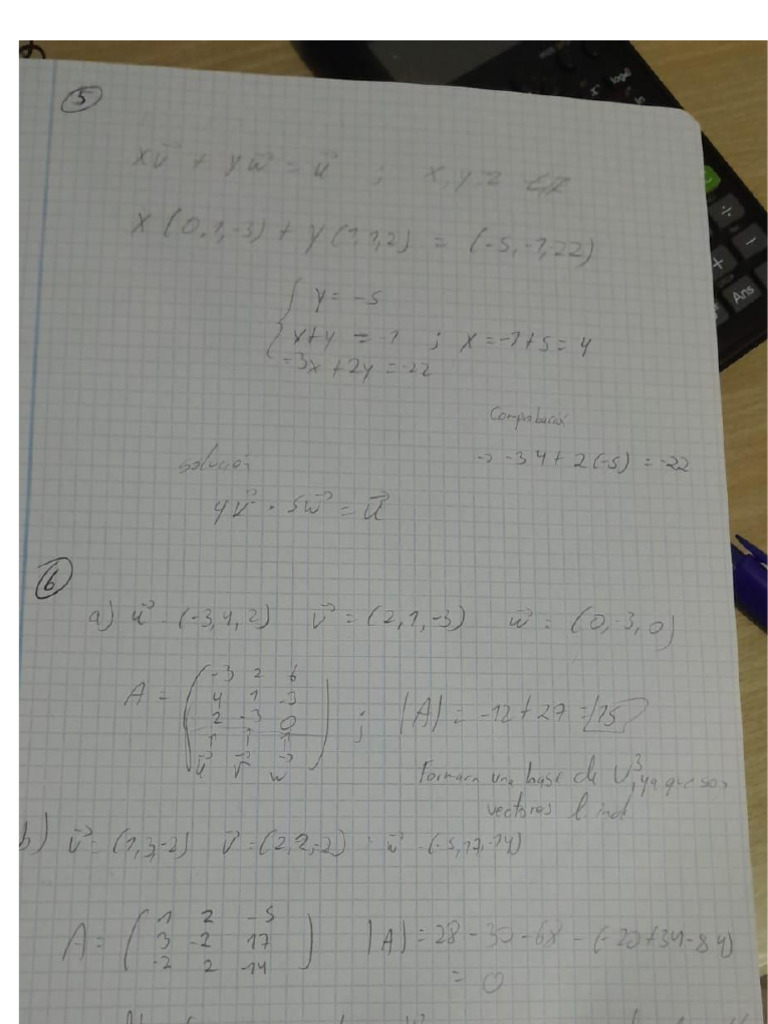 5
x v⃗ + y w⃗ = u⃗ ; x, y, z
x (0,1,-3) + y (1,1,2) = (-5,-1,22)
y = -5
x+y = 1 ; x = -1+5 = 4
-3x + 2y = -22
Comprobación
→ -3·4 + 2(-5) = -22
solución
4v⃗ · 5w⃗ = u⃗
6
a) u⃗ = (-3,4,2) v⃗ = (2,1,-3) w⃗ = (0,-3,0)
-3 2 6
A = 4 1 -3 ; |A| = -12 + 27 = 15
2 -3 0
u⃗ v⃗ w⃗
Forman una base de V³, ya que son
vectores l. ind
b) v⃗ = (1,3,-2) v⃗ = (2,2,-2) w⃗ = (-5,17,-14)
1 2 -5
A = 3 -2 17 |A| = 28 - 30 - 68 - (-20+34-84)
-2 2 -14
= 0
÷
+
Ans